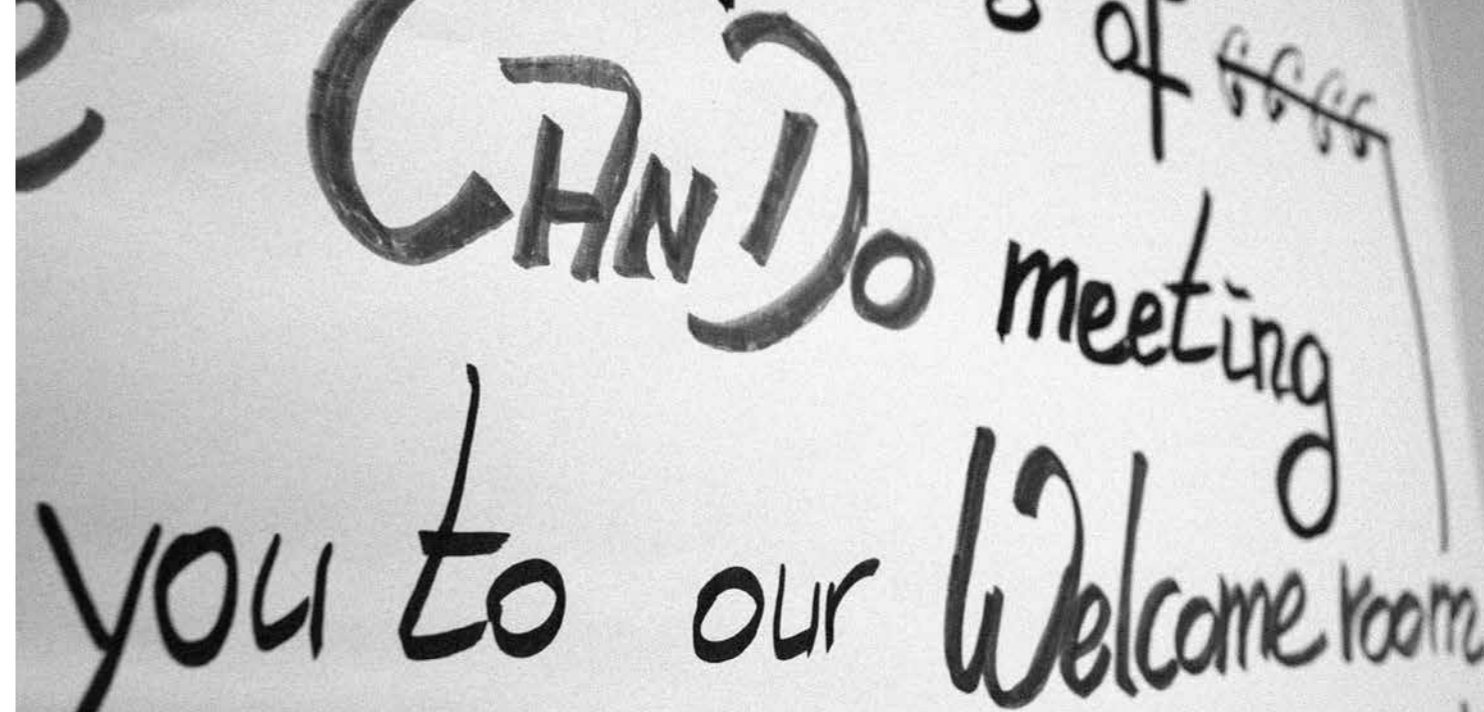 of
CANDo meeting
you to our Welcome room